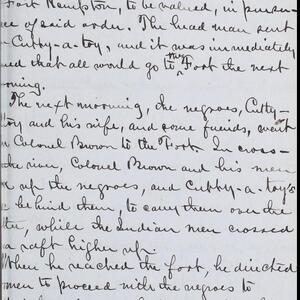 Fort Hampton, to be valued, in pursu-
ce of said order. The head man sent
Cutty-a-toy, and it was immediately
ned that all would go to my Fort the next
rning.
The next morning, the negroes, Cutty-
toy and his wife, and some friends, went
Colonel Brown to the Fort. In cross-
the river, Colonel Brown and his men
k up the negroes, and Cutty-a-toy's
e behind them, to carry them over the
ter, while the Indian men crossed
a raft higher up.
When he reached the fort, he directed
omen to proceed with the negroes to